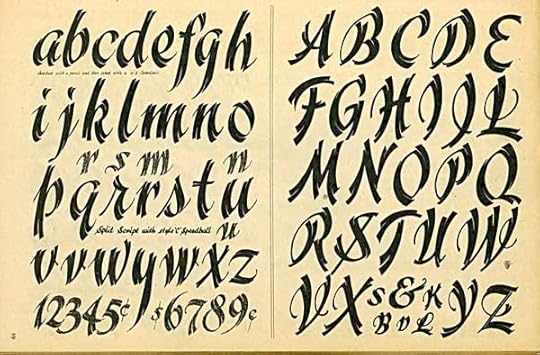 abcdefgh
sketched with a pencil and then inked with a C-3 Speedball
ijklmno
r s m n
pqrrstu
Split Script with style "C" Speedball u
vvwywxz
12345¢ $6789¢
ABCDE
FGHIJL
MNOPQ
RSTUW
VX S&K YZ
B V L